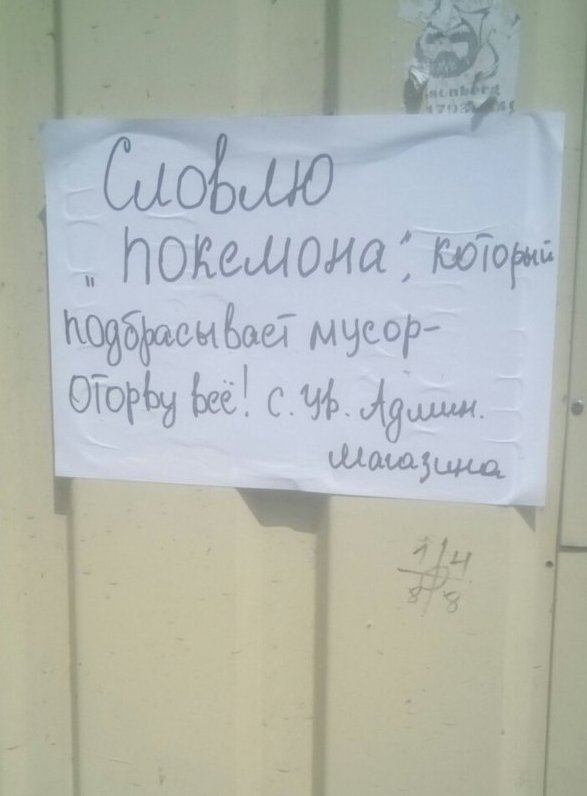 Словлю
„покемона“, который
подбрасывает мусор-
Оторву всё! с.ур. Админ.
магазина
14
88